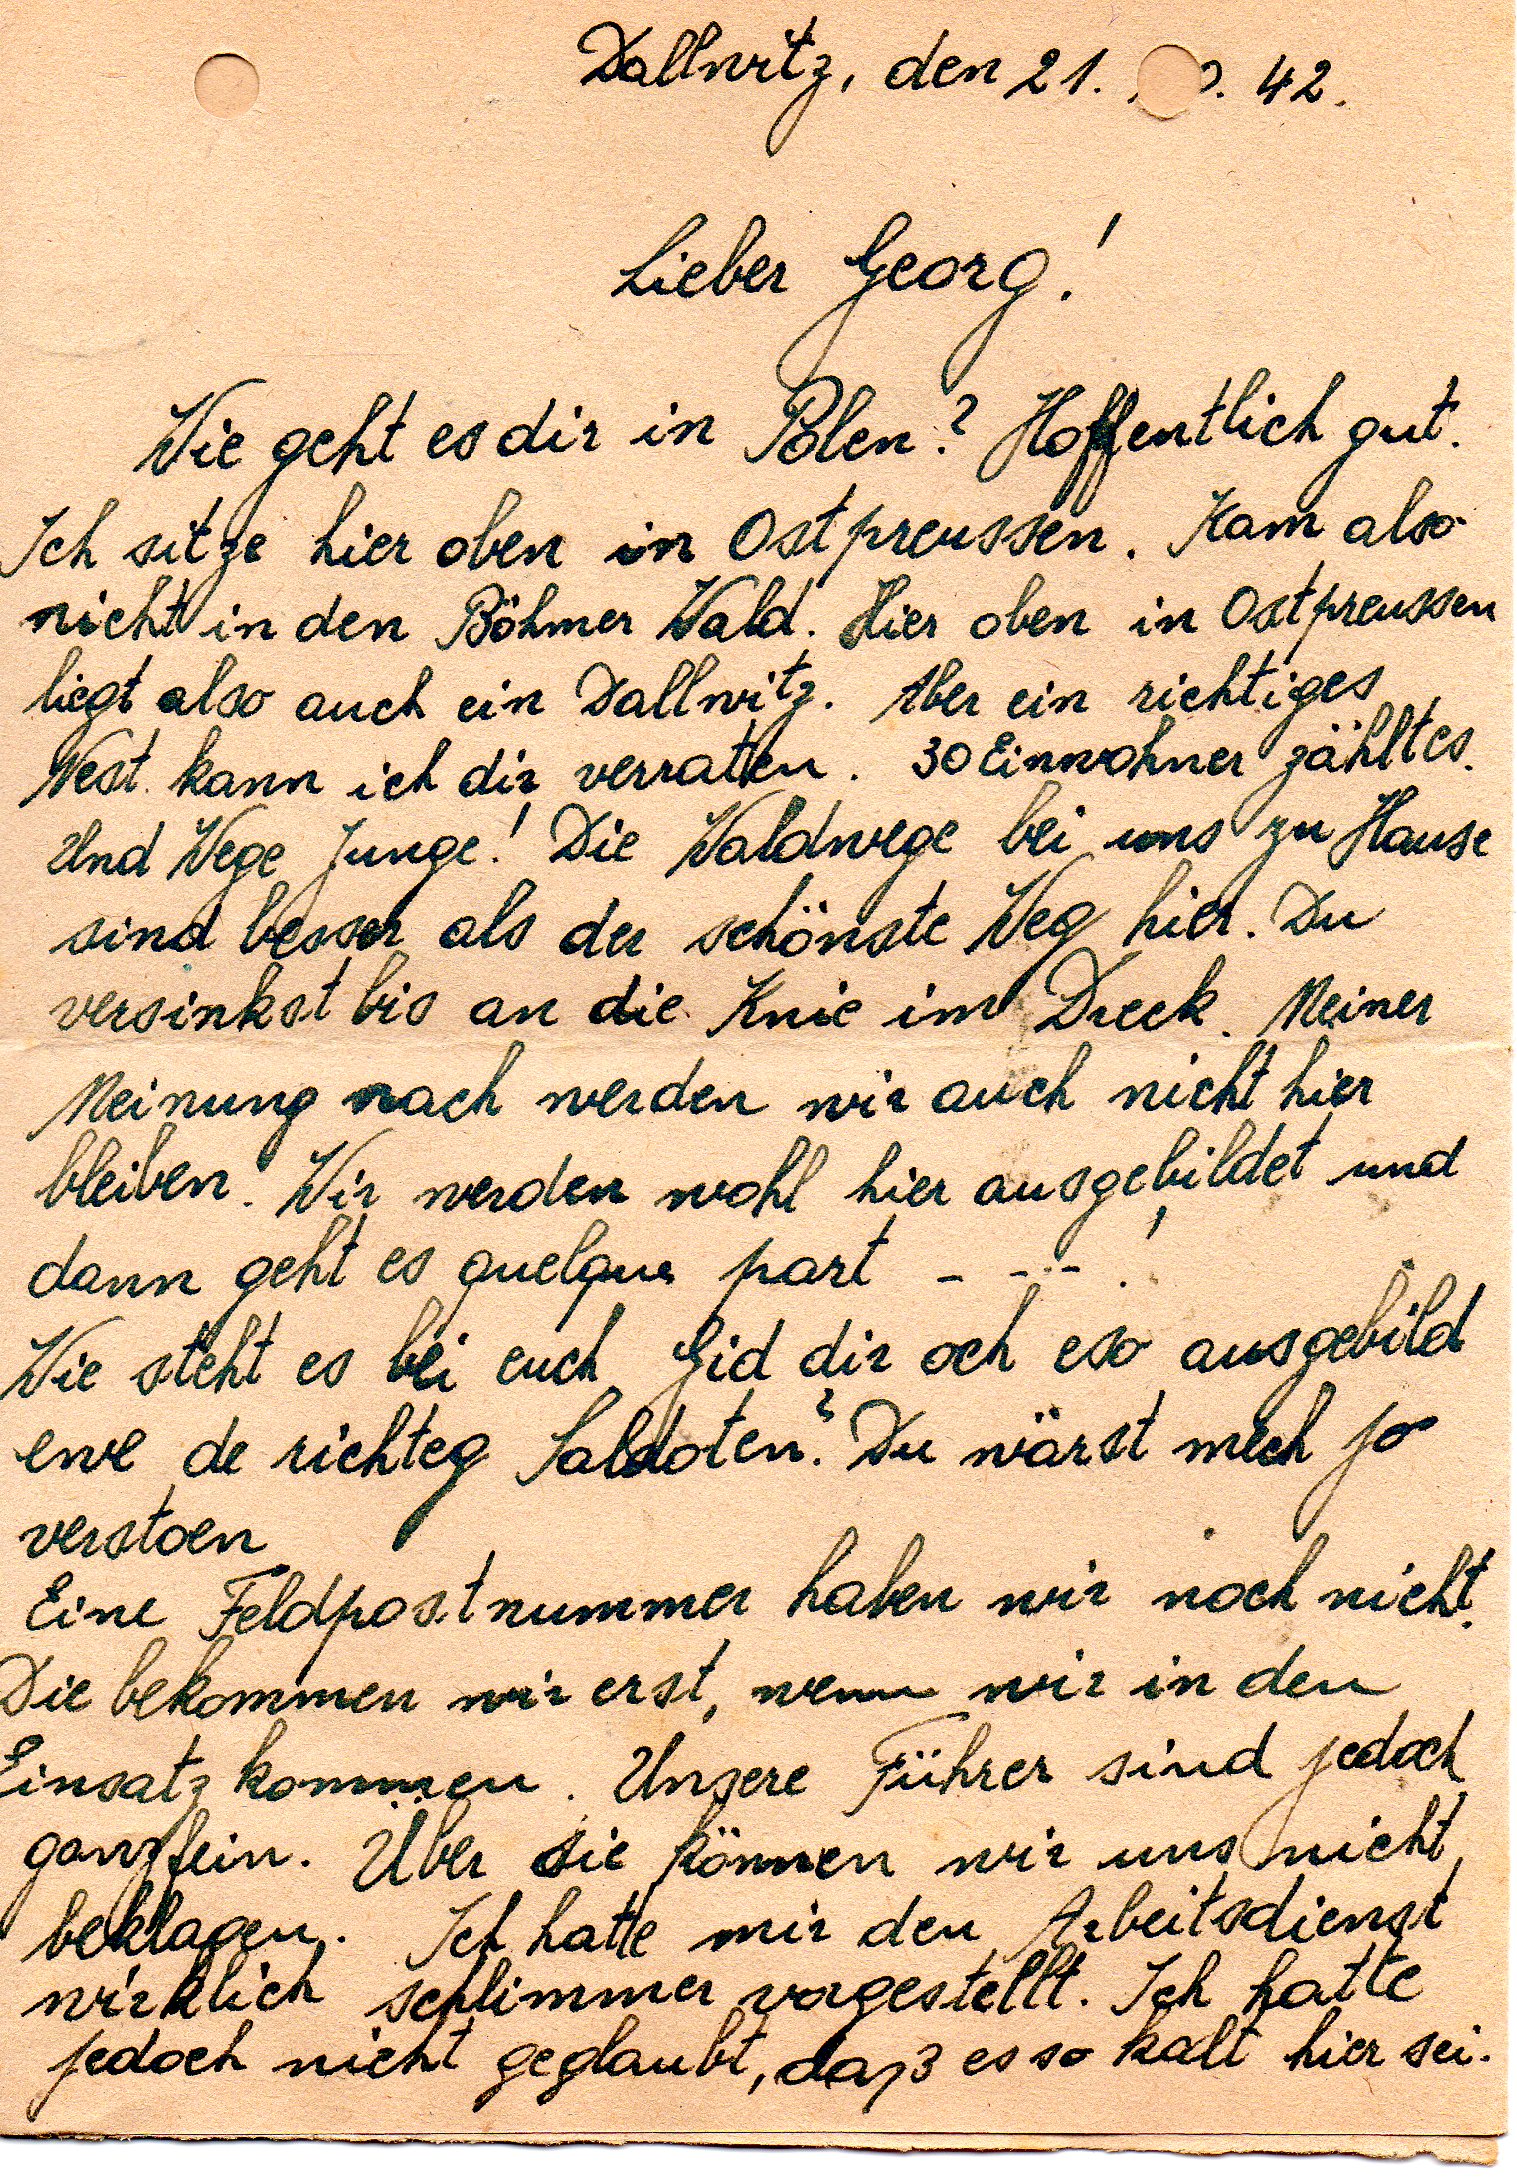 Dallwitz, den 21. 10. 42.
Lieber Georg!
Wie geht es dir in Polen? Hoffentlich gut.
Ich sitze hier oben in Ostpreussen. Kam also
nicht in den Böhmer Wald. Hier oben in Ostpreussen
liegt also auch ein Dallwitz. Aber ein richtiges
Nest. kann ich dir verraten. 30 Einwohner zählt es.
Und Wege Junge! Die Waldwege bei uns zu Hause
sind besser als der schönste Weg hier. Du
versinkst bis an die Knie im Dreck. Meiner
Meinung nach werden wir auch nicht hier
bleiben. Wir werden wohl hier ausgebildet und
dann geht es quelque part - - - !
Wie steht es bei euch Gid dir och eso ausgebild
ewe de richteg Saldoten? Du wärst mech jo
verstoen
Eine Feldpostnummer haben wir noch nicht.
Die bekommen wir erst, wenn wir in den
Einsatz kommen. Unsere Führer sind jedoch
ganz fein. Über sie können wir uns nicht
beklagen. Ich hatte mir den Arbeitsdienst
wirklich schlimmer vorgestellt. Ich hatte
jedoch nicht geglaubt, daß es so kalt hier sei.